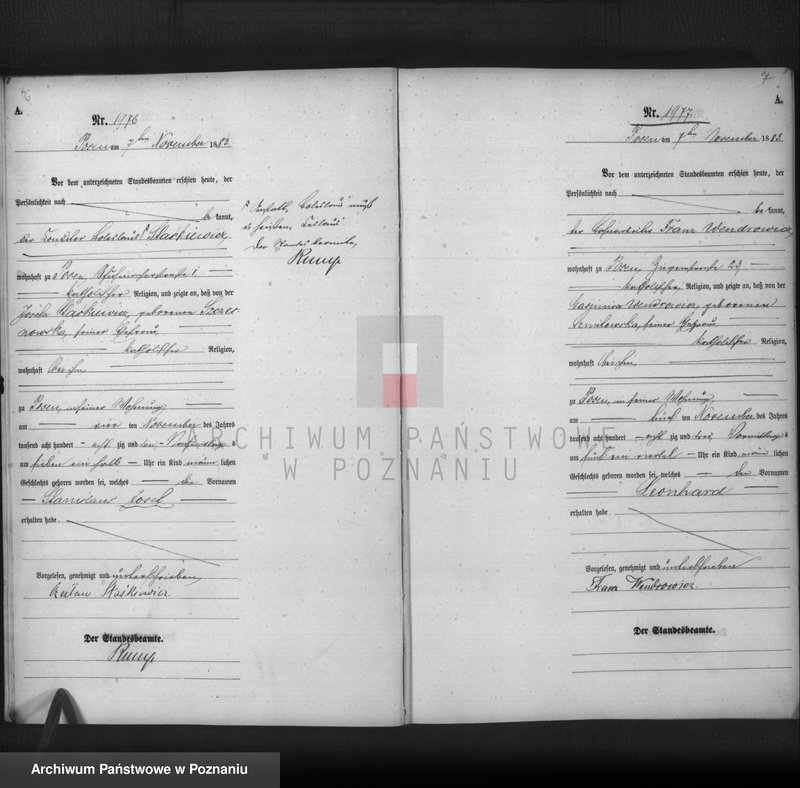 6
A.
Nr. 1976
Posen am 7ten November 1883.
Vor dem unterzeichneten Standesbeamten erschien heute, der
Persönlichkeit nach
be kannt,
der
Staśkiewicz
wohnhaft zu Posen,
katholischer Religion, und zeigte an, daß von der
Josefa Staśkiewicz, geborenen
seiner Ehefrau
katholischer Religion,
wohnhaft bei ihm
zu Posen, in seiner Wohnung
am vier ten November des Jahres
tausend acht hundert acht zig und drei Nachmittags
um sieben ein halb Uhr ein Kind männ lichen
Geschlechts geboren worden sei, welches die Vornamen
Stanislaw Josef
erhalten habe.
Vorgelesen, genehmigt und unterschrieben
Staśkiewicz
Der Standesbeamte.
Rump
heißen,
Der Standesbeamte,
Rump
7
A.
Nr. 1977
Posen am 7ten November 1883.
Vor dem unterzeichneten Standesbeamten erschien heute, der
Persönlichkeit nach
be kannt,
der Franz Wendrowicz
wohnhaft zu Posen, 23
katholischer Religion, und zeigte an, daß von der
Casimira Wendrowicz geborenen
seiner Ehefrau
katholischer Religion,
wohnhaft bei ihm
zu Posen, in seiner Wohnung
am fünf ten November des Jahres
tausend acht hundert acht zig und drei, Vormittags
um fünf ein viertel Uhr ein Kind männ lichen
Geschlechts geboren worden sei, welches den Vornamen
Leonhard
erhalten habe.
Vorgelesen, genehmigt und unterschrieben
Franz Wendrowicz
Der Standesbeamte.
ARCHIWUM PAŃSTWOWE
W POZNANIU
Archiwum Państwowe w Poznaniu